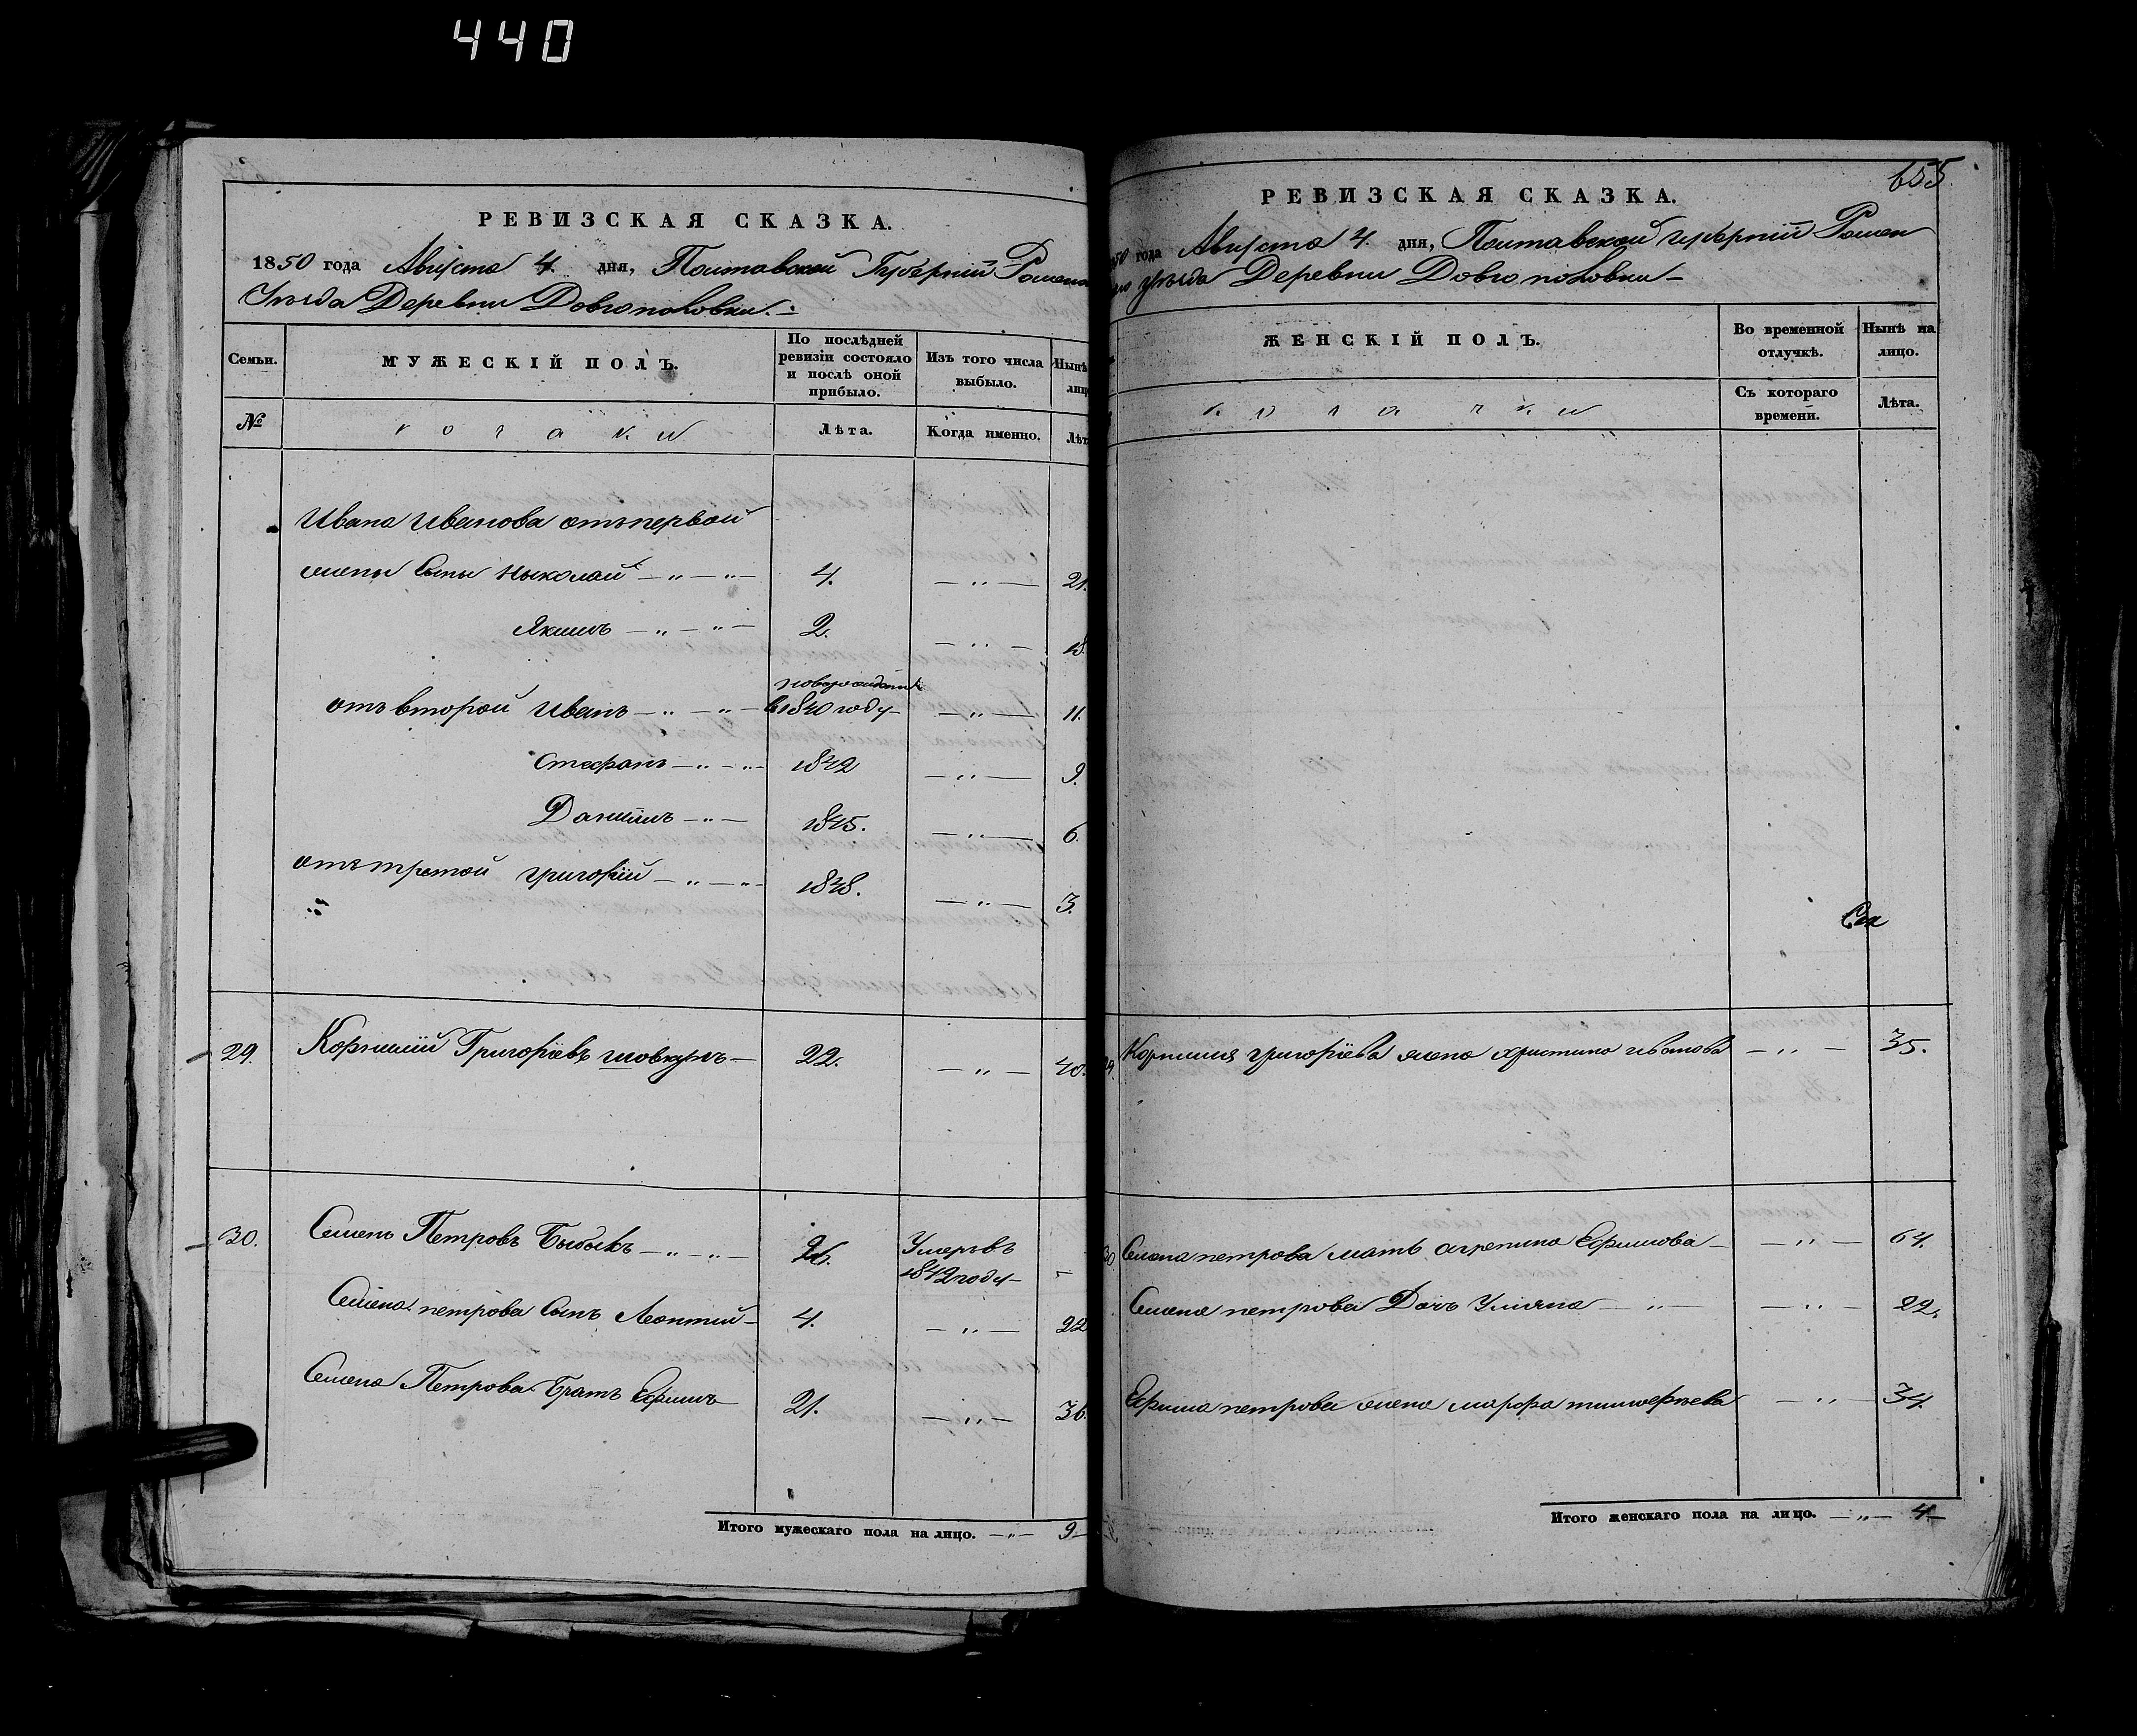 440
РЕВИЗСКАЯ СКАЗКА.
1850 года Августа 4 дня, Полтавской Губерніи Роменс
Уѣзда Деревни Довгополовки.
Семьи.
МУЖЕСКІЙ ПОЛЪ.
По послѣдней ревизіи состояло и послѣ оной прибыло.
Изъ того числа выбыло.
Нынѣ лиц
№
козаки
Лѣта.
Когда именно.
Лѣт
Ивана Иванова отъ первой
жены Сыны Николай — „ — „ — 4. — „ — 21.
Якимъ — „ — „ — 2. — „ — 18.
новорожденъ
отъ второй Иванъ — „ — „ — в 1840 году — „ — 11.
Стефанъ — „ — „ 1842 — „ — 9.
Даніилъ — „ — 1845. — „ — 6
отъ третой григорій — „ — „ 1848. — „ — 3.
29. Корнилій Григоріевъ шовкунъ — 22. — „ — 40.
30. Семенъ Петровъ Быбыкъ — „ — „ — 26. Умеръ въ 1842 году —
Семена петрова Сынъ Леонтій — 4. — „ — 22
Семена Петрова Братъ Ефимъ 21. — „ — 36.
Итого мужескаго пола на лицо. — „ — 9
655.
РЕВИЗСКАЯ СКАЗКА.
50 года Августа 4 дня, Полтавской губерніи Ромен
уѣзда Деревни Довгополовки —
ЖЕНСКІЙ ПОЛЪ.
Во временной отлучкѣ.
Нынѣ на лицо.
козачки
Съ котораго времени.
Лѣта.
29. Корнилия григоріева жена христина иванова — „ — 35.
30 Семена петрова мать агрепина Ефимова — — „ — 64.
Семена петрова Дочь Уляна — „ — — „ 22.
Ефима петрова жена марфа тимофеева — „ — 34.
Итого женскаго пола на лицо. — „ — 4